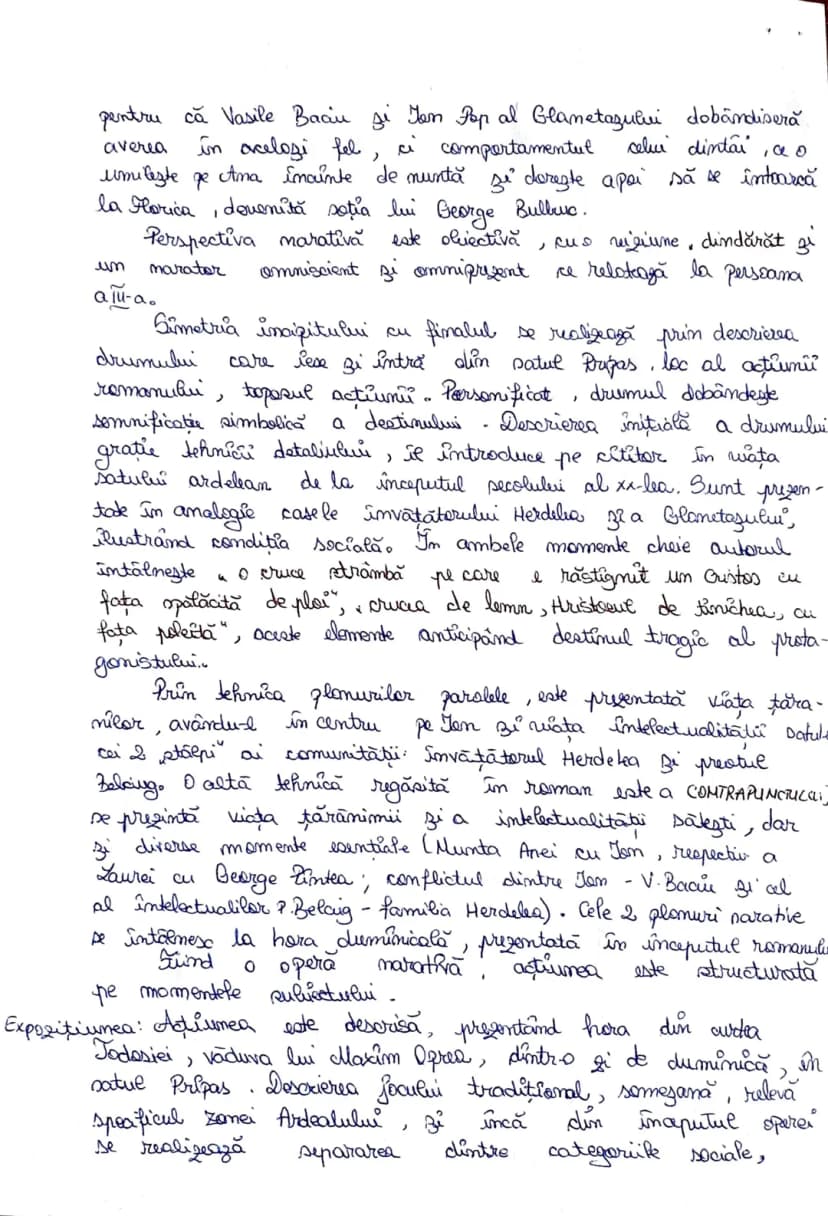 pentru că Vasile Baciu și Ion Pop al Glanetașului dobândiseră
averea în același fel, ci comportamentul celui dintâi, ce o
umilește pe Ana înainte de nuntă și dorește apoi să se întoarcă
la Florica, devenită soția lui George Bulbuc.
Perspectiva narativă este obiectivă, cu o viziune „dindărăt și
un narator omniscient și omniprezent ce relatează la persoana
a III-a.
Simetria incipitului cu finalul se realizează prin descrierea
drumului care iese și intră din satul Pripas, loc al acțiunii
romanului, toposul acțiunii. Personificat, drumul dobândește
semnificație simbolică a destinului. Descrierea inițială a drumului
grație tehnicii detaliului, îl introduce pe cititor în viața
satului ardelean de la începutul secolului al XX-lea. Sunt prezen-
tate în analogie casele învățătorului Herdelea și a Glanetașului,
ilustrând condiția socială. În ambele momente cheie autorul
întâlnește „o cruce strâmbă pe care e răstignit un Cristos cu
fața spălăcită de ploi", „crucea de lemn, Hristosul de tinichea, cu
fața poleită", aceste elemente anticipând destinul tragic al prota-
gonistului.
Prin tehnica planurilor paralele, este prezentată viața țăra-
nilor, avându-l în centru pe Ion și viața intelectualității satul
cei 2 „stâlpi" ai comunității: învățătorul Herdelea și preotul
Belciug. O altă tehnică regăsită în roman este a CONTRAPUNCTULUI,
se prezintă viața țărănimii și a intelectualității sătești, dar
și diverse momente esențiale (Nunta Anei cu Ion, respectiv a
Laurei cu George Pintea; conflictul dintre Ion - V. Baciu și cel
al intelectualilor P. Belciug - familia Herdelea). Cele 2 planuri narative
se întâlnesc la hora duminicală, prezentată în începutul romanului
Fiind o operă narativă, acțiunea este structurată
pe momentele subiectului.
Expozițiunea: Acțiunea este descrisă, prezentând hora din curtea
Todosiei, văduva lui Maxim Oprea, dintr-o zi de duminică, în
satul Pripas. Descrierea jocului tradițional, someșană, relevă
specificul zonei Ardealului, și încă din începutul operei
se realizează separarea dintre categoriile sociale,